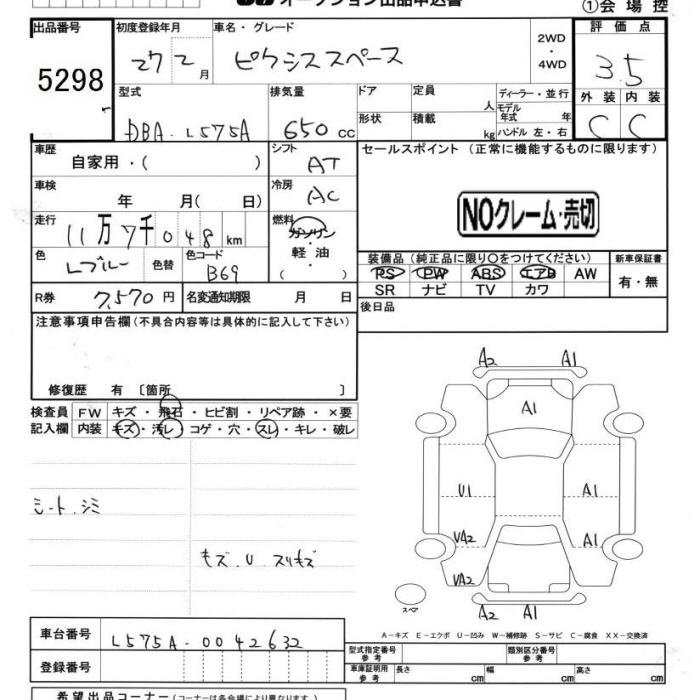 オークション出品申込書
①会場控
出品番号
5298
初度登録年月
27 2月
車名・グレード
ピクシススペース
2WD
・
4WD
評価点
3.5
外装 内装
C C
型式
DBA-L575A
排気量
650 cc
ドア
定員 人
ディーラー・並行
モデル年式 年
形状
積載 kg
ハンドル 左・右
車歴
自家用・( )
シフト
AT
セールスポイント (正常に機能するものに限ります)
車検
年 月( 日)
冷房
AC
NOクレーム・売切
走行
11万7千048km
燃料
ガソリン
・
軽油
( )
色
Lブルー
色替
色コード
B69
装備品 (純正品に限り○をつけてください)
PS PW ABS エアB AW
SR ナビ TV カワ
新車保証書
有・無
R券
7,570円
名変通知期限 月 日
後日品
注意事項申告欄 (不具合内容等は具体的に記入して下さい)
修復歴 有 〔箇所 〕
検査員
記入欄
FW キズ・飛石・ヒビ割・リペア跡・×要
内装 キズ・汚レ・コゲ・穴・スレ・キレ・破レ
シート・シミ
キズ. U. スリキズ
A2 A1
A1
U1 A1
UA2 A1
UA2
A2 A1
スペア
A-キズ E-エクボ U-凹み W-補修跡 S-サビ C-腐食 XX-交換済
車台番号
L575A-0042632
登録番号
型式指定番号
参考
類別区分番号
参考
車庫証明用
参考
長さ cm 幅 cm 高さ cm
希望出品コーナー (コーナーは各会場により異なります)